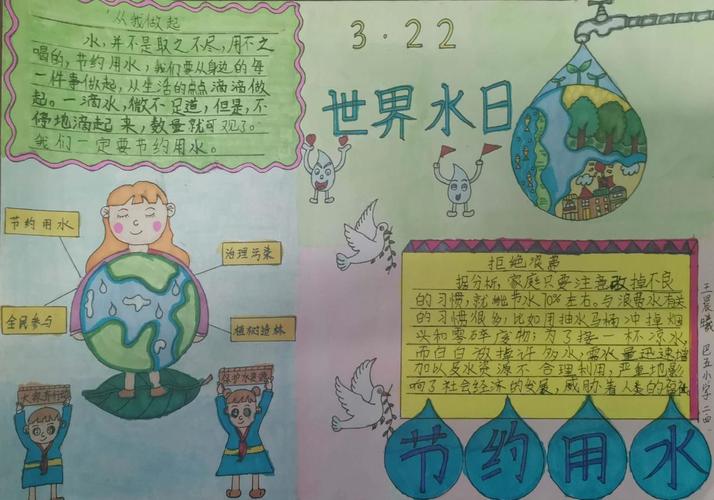 从我做起
水,并不是取之不尽,用不之
喝的,节约用水,我们要从身边的每
一件事做起,从生活的点点滴滴做
起。一滴水,微不足道,但是,不
停地滴起来,数量就可观了。
我们一定要节约用水。
3·22
世界水日
节约用水
治理污染
全民参与
植树造林
大家齐行动
保护水资源
拒绝浪费
据分析,家庭只要注意改掉不良
的习惯,就能节水70%左右。与浪费水有关
的习惯很多,比如用抽水马桶冲掉烟
头和零碎废物;为了接一杯凉水,
而白白放掉许多水,需水量迅速增
加以及水资源不合理利用,严重地影
响了社会经济的发展,威胁着人类的
节约用水
王晨曦 巴五小学 二四